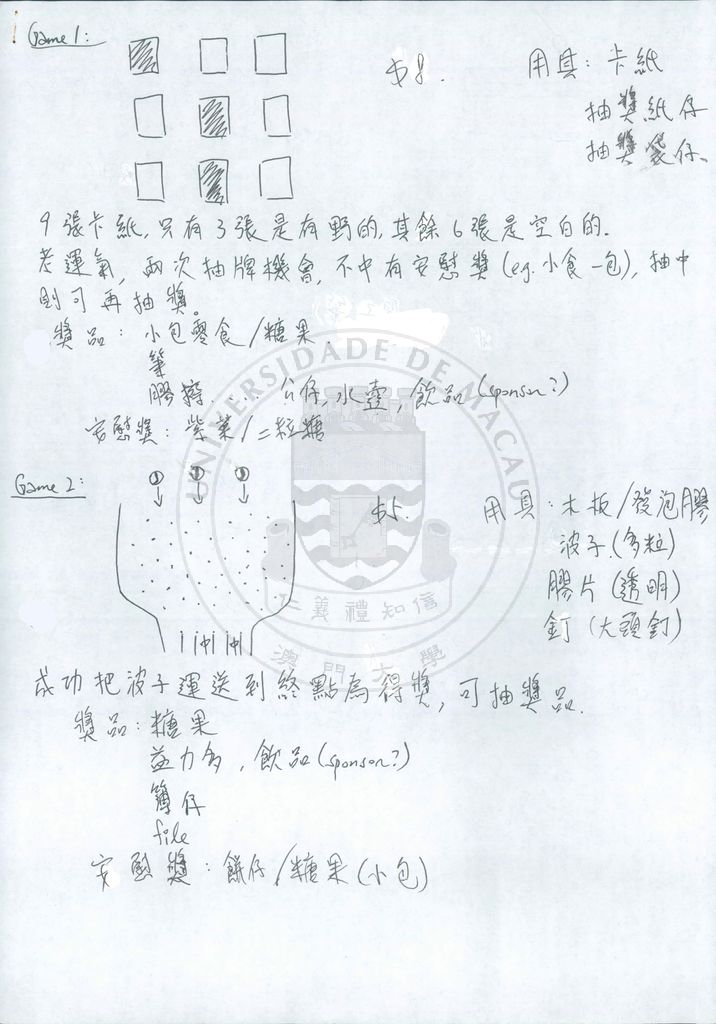 Game 1:
$8.
用具: 卡紙
抽獎紙仔
抽獎袋仔.
9張卡紙, 只有3張是有野的, 其餘6張是空白的.
考運氣, 兩次抽牌機會, 不中有安慰獎 (e.g. 小食一包), 抽中
則可再抽獎。
獎品: 小包零食/糖果.
筆
膠擦..... 公仔, 水壺, 飲品 (sponsor?)
安慰獎: 紫菜/二粒糖
UNIVERSIDADE DE MACAU
仁義禮知信
澳門大學
Game 2:
① ② ③
$5.
用具: 木板/發泡膠
波子 (多粒)
膠片 (透明)
釘 (大頭釘)
中 中
成功把波子運送到終點為得獎, 可抽獎品.
獎品: 糖果
益力多, 飲品 (sponsor?)
簿仔
file
安慰獎: 餅仔/糖果 (小包)